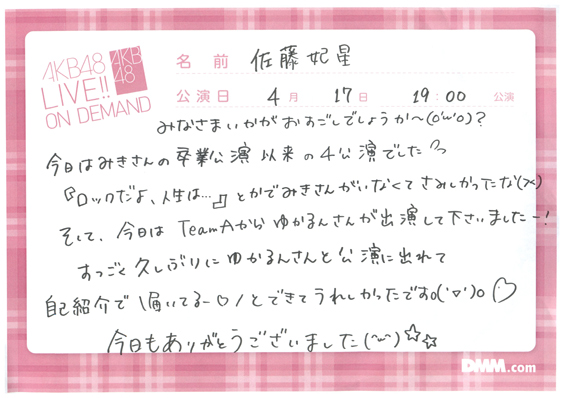 AKB48
LIVE!!
ON DEMAND
AKB
48
名 前 佐藤妃星
公演日 4月 17日 19:00 公演
みなさまいかがおすごしでしょうか〜(o'ω'o)?
今日はみきさんの卒業公演以来の4公演でした
『ロックだよ、人生は…』とかでみきさんがいなくてさみしかったな(><)
そして、今日はTeamAからゆかるんさんが出演して下さいましたー!
すっごく久しぶりにゆかるんさんと公演に出れて
自己紹介で\届いてるー♡/とできてうれしかったですo('▽')o♡
今日もありがとうございました(^ω^)☆☆
DMM.com